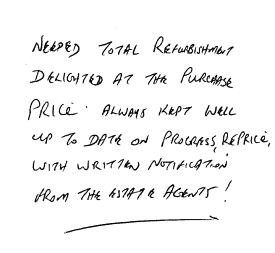 NEEDED TOTAL REFURBISHMENT
DELIGHTED AT THE PURCHASE
PRICE. ALWAYS KEPT WELL
UP TO DATE ON PROGRESS, REPRICE,
WITH WRITTEN NOTIFICATION
FROM THE ESTATE AGENTS!